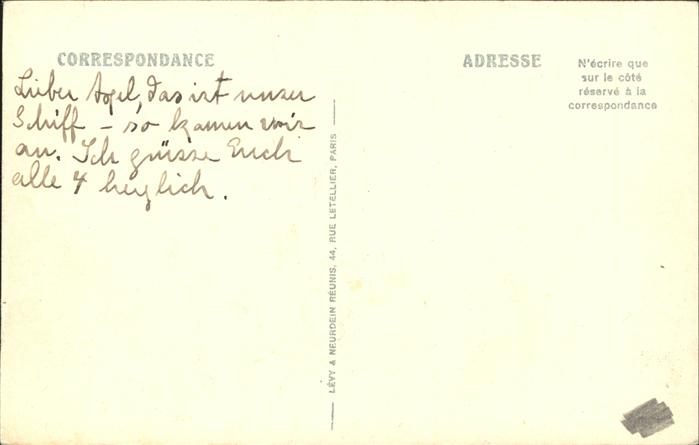 CORRESPONDANCE
Lieber Axel, das ist unser
Schiff – so kamen wir
an. Ich grüsse Euch
alle 4 herzlich.
LÉVY & NEURDEIN RÉUNIS, 44, RUE LETELLIER, PARIS
ADRESSE
N'écrire que
sur le côté
réservé à la
correspondance